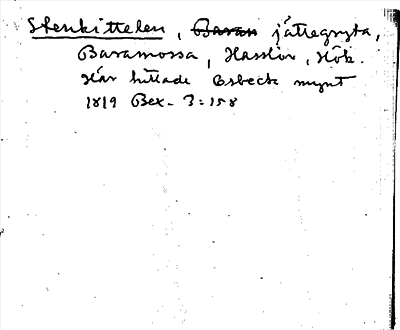 Stenkittelen, Baran jättegryta,
Baramossa, Hasslöv, Hök.
Här hittade Osbeck mynt
1819 Bex. 3:158